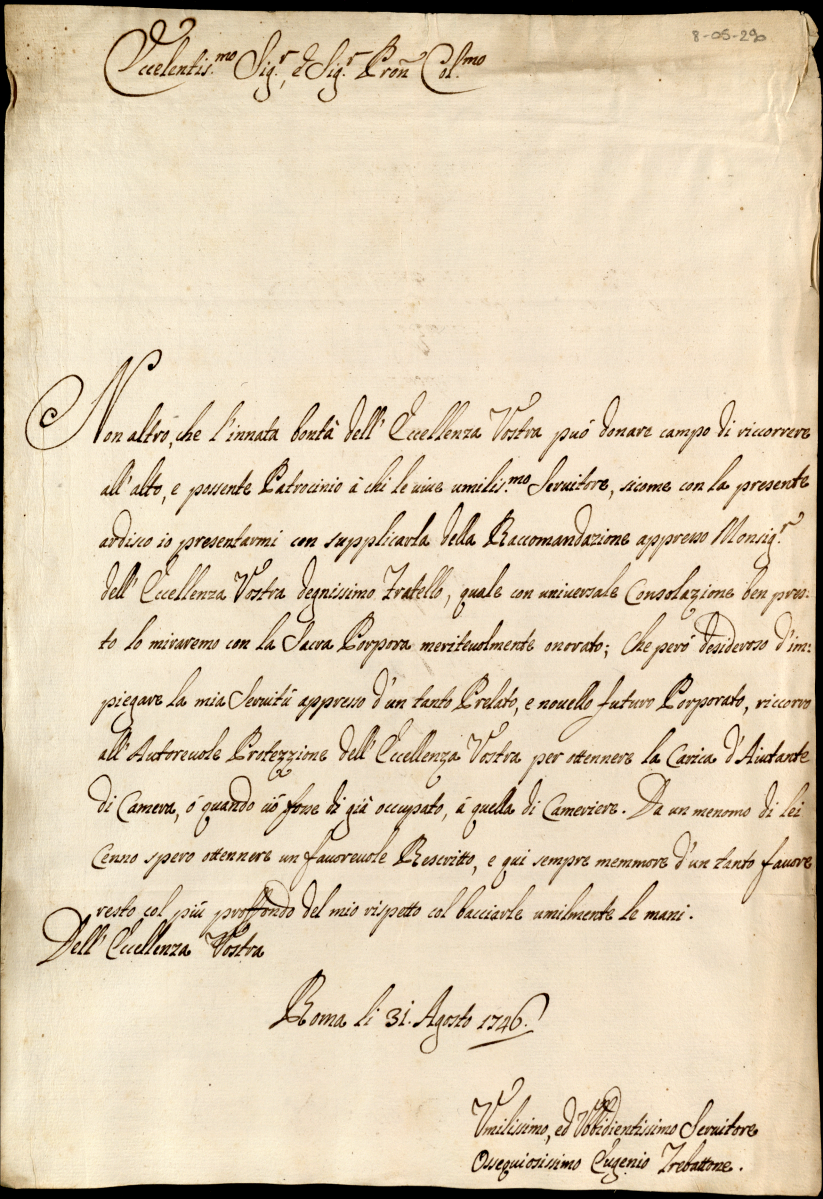 8-05-290
Eccelentis.mo Sig.r, e Sig.r Pron Col.mo
Non altro, che l'innata bontà dell'Eccellenza Vostra può donare campo di riccorrere
all'alto, e possente Patrocinio à chi le vive umilis.mo Servitore, sicome con la presente
ardisco io presentarmi con supplicarla della Raccomandazione appresso Monsig.r
dell'Eccellenza Vostra degnissimo Fratello, quale con universale Consolazione ben pres:
to lo miraremo con la Sacra Porpora meritevolmente onorato; Che però desideroso d'im:
piegare la mia Servitù appresso d'un tanto Prelato, e novello futuro Porporato, riccorro
all'Autorevole Protezzione dell'Eccellenza Vostra per ottennere la Carica d'Aiutante
di Camera, ò quando ciò fosse di già occupato, à quella di Cameriere. Da un menomo di lei
Cenno spero ottennere un favorevole Rescritto, e qui sempre memmore d'un tanto favore
resto col più proffondo del mio rispetto col bacciarle umilmente le mani.
Dell'Eccellenza Vostra
Roma li 31. Agosto 1746.
Umilissimo, ed Vobbidientissimo Servitore
Ossequiosissimo Eugenio Trebattone.